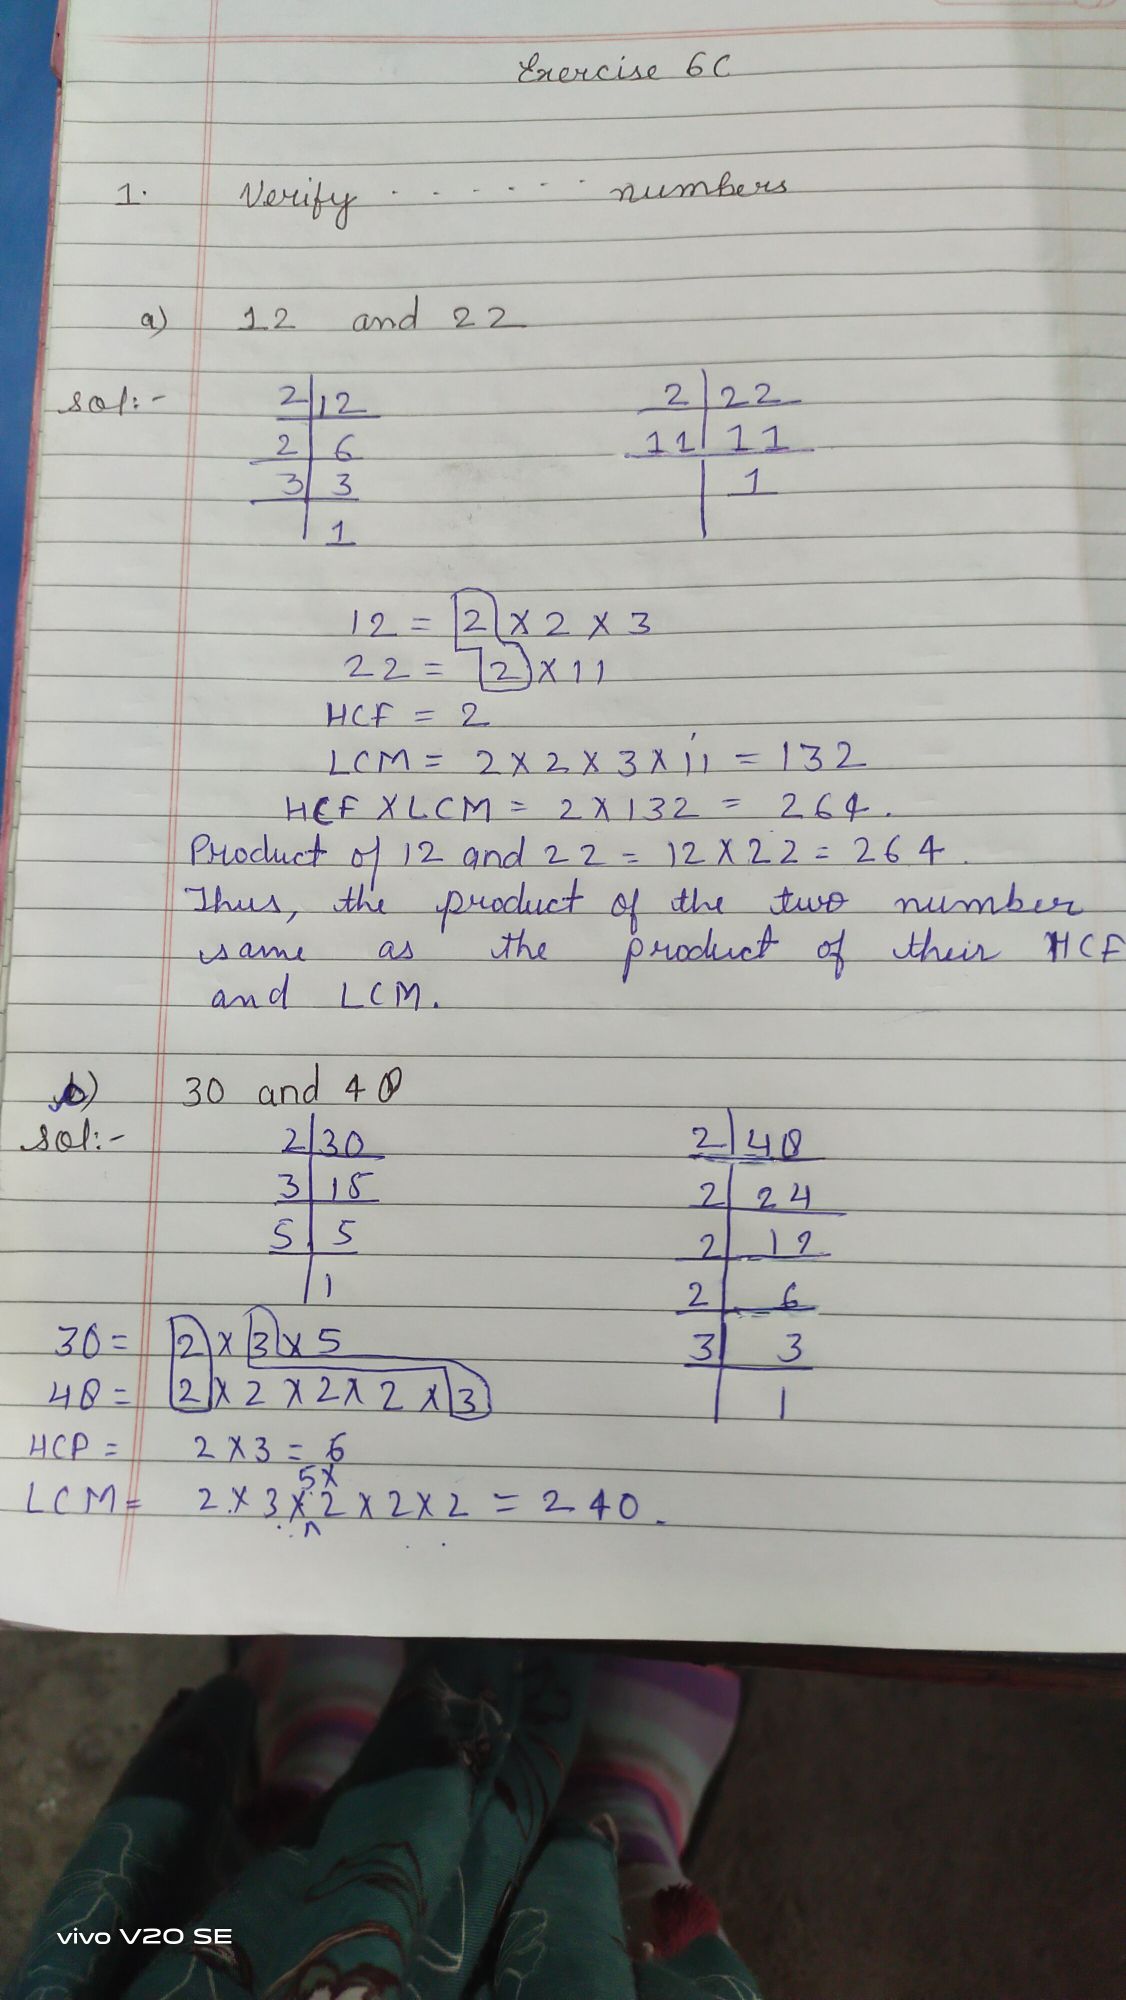 Exercise 6C
1. Verify . . . . . . . numbers
a) 12 and 22
Sol:-
2 | 12
2 | 6
3 | 3
| 1
2 | 22
11 | 11
| 1
12 = 2 × 2 × 3
22 = 2 × 11
HCF = 2
LCM = 2 × 2 × 3 × 11 = 132
HCF × LCM = 2 × 132 = 264.
Product of 12 and 22 = 12 × 22 = 264.
Thus, the product of the two number
same as the product of their HCF
and LCM.
b) 30 and 48
Sol:-
2 | 30
3 | 15
5 | 5
| 1
2 | 48
2 | 24
2 | 12
2 | 6
3 | 3
| 1
30 = 2 × 3 × 5
48 = 2 × 2 × 2 × 2 × 3
HCP = 2 × 3 = 6
LCM = 2 × 3 × 5 × 2 × 2 × 2 = 240.
vivo V20 SE